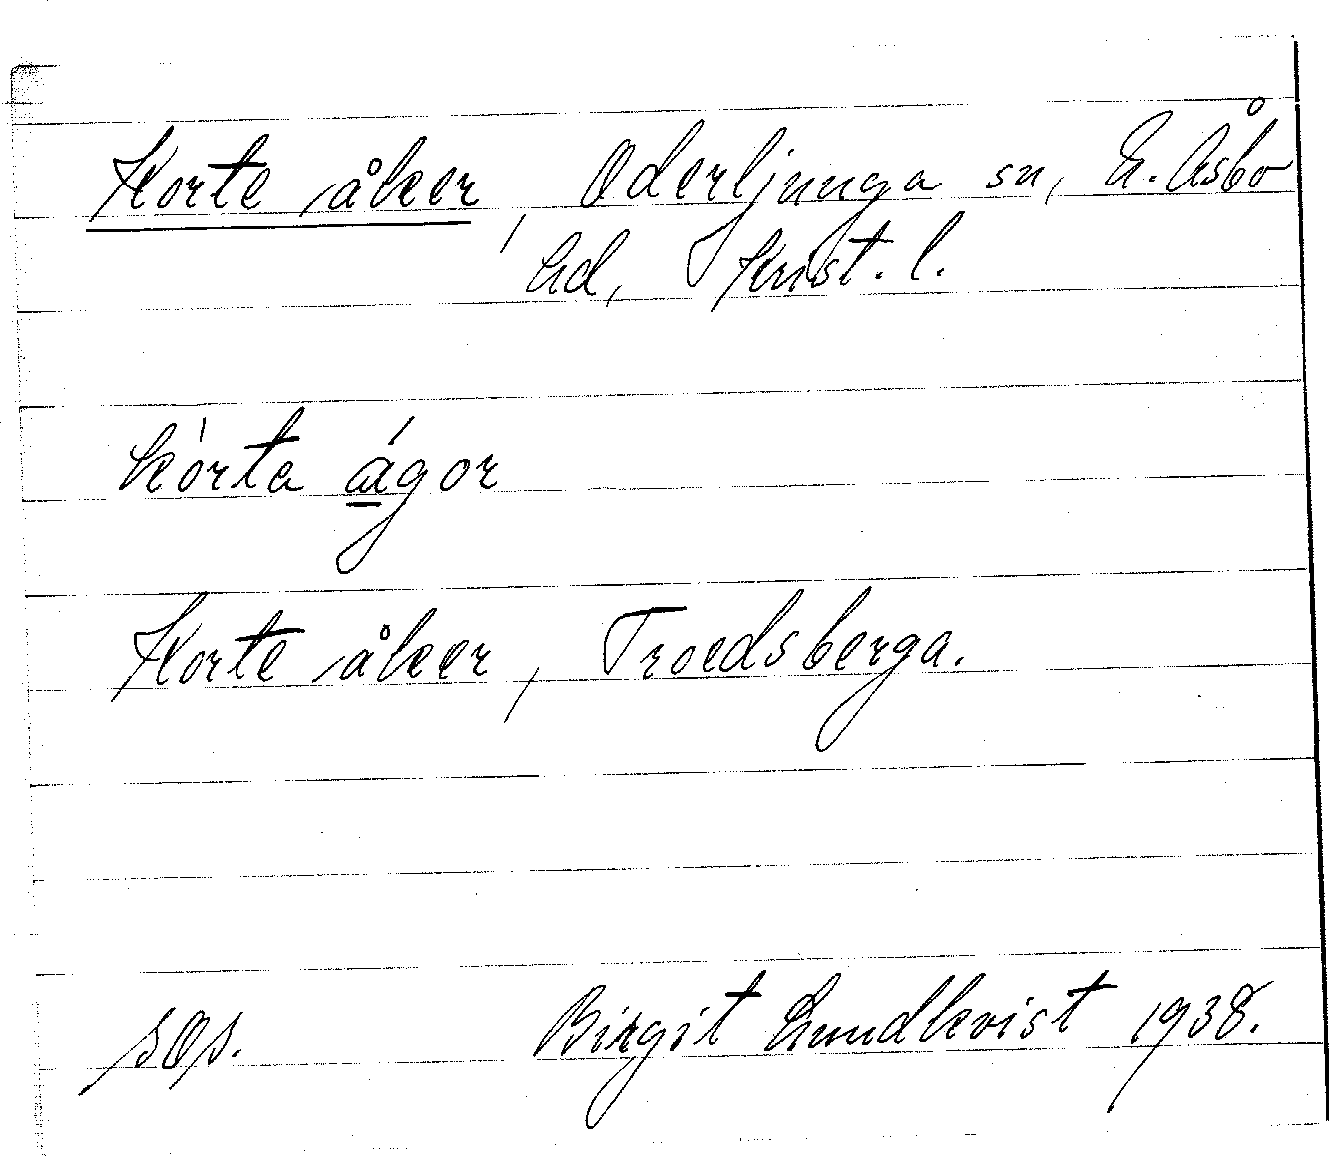 Korte åker, Oderljunga sn, N. Åsbo
hd, Krist. l.
kórta ágor
Korte åker, Troedsberga.
sOs. Birgit Lundkvist 1938.